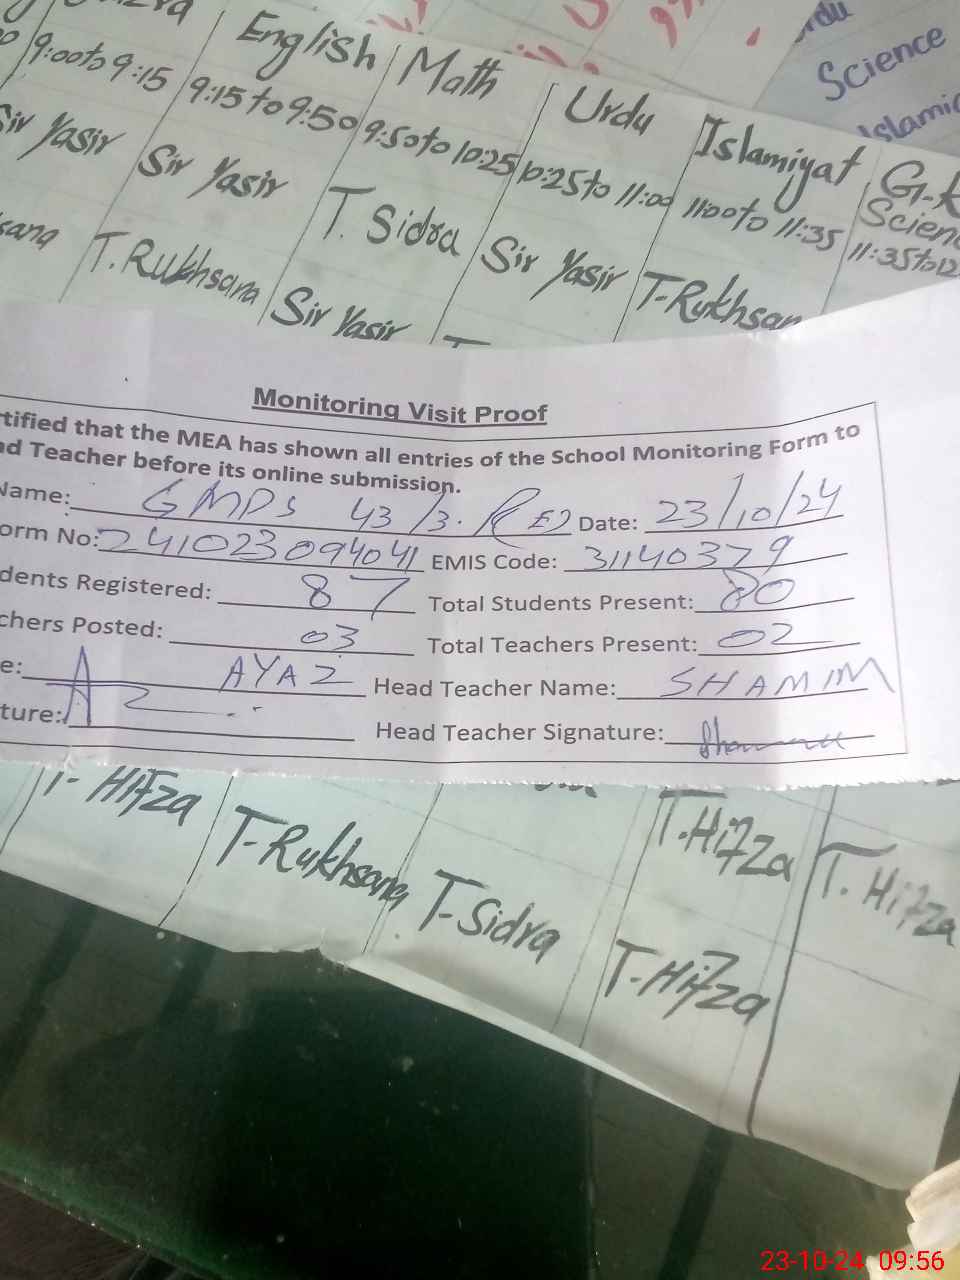 English Math Urdu Islamiyat G.K
Science
9:00 to 9:15 9:15 to 9:50 9:50 to 10:25 10:25 to 11:00 11:00 to 11:35 11:35 to 12
Sir Yasir Sir Yasir T. Sidra Sir Yasir T-Rukhsan
sana T.Rukhsana Sir Yasir
Science
Islamic
Monitoring Visit Proof
rtified that the MEA has shown all entries of the School Monitoring Form to
ad Teacher before its online submission.
Name: GMPS 43/3. Date: 23/10/24
orm No: 241023094041 EMIS Code: 31140379
dents Registered: 87 Total Students Present: 80
chers Posted: 03 Total Teachers Present: 02
e: AYAZ Head Teacher Name: SHAMIM
ture: Head Teacher Signature:
T- Hifza T-Rukhsana T-Sidra T.Hifza T. Hifza
T-Hifza
23-10-24 09:56